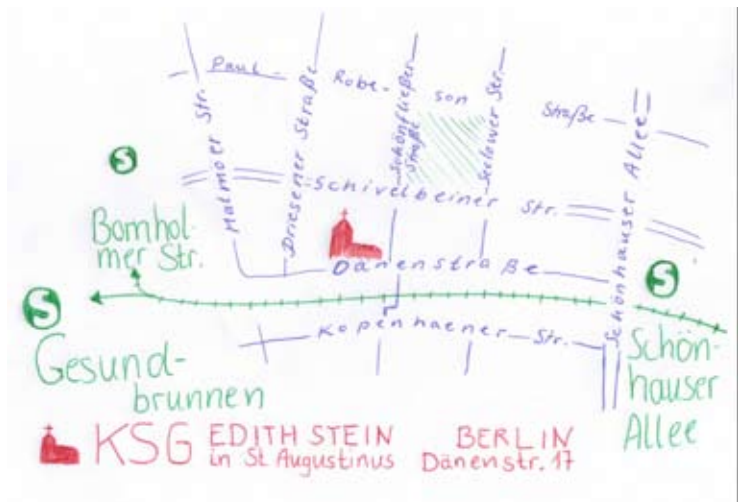 Paul- Robe- son Straße
Malmoer Str.
Driesener Straße
Schönfließer Straße
Seelower Str.
Schönhauser Allee
Schivelbeiner Str.
S
Bornhol-
mer Str.
Dänenstraße
S
S
Kopenhaener Str.
Gesund-
brunnen
Schön-
hauser
Allee
KSG EDITH STEIN
in St Augustinus
BERLIN
Dänenstr. 17